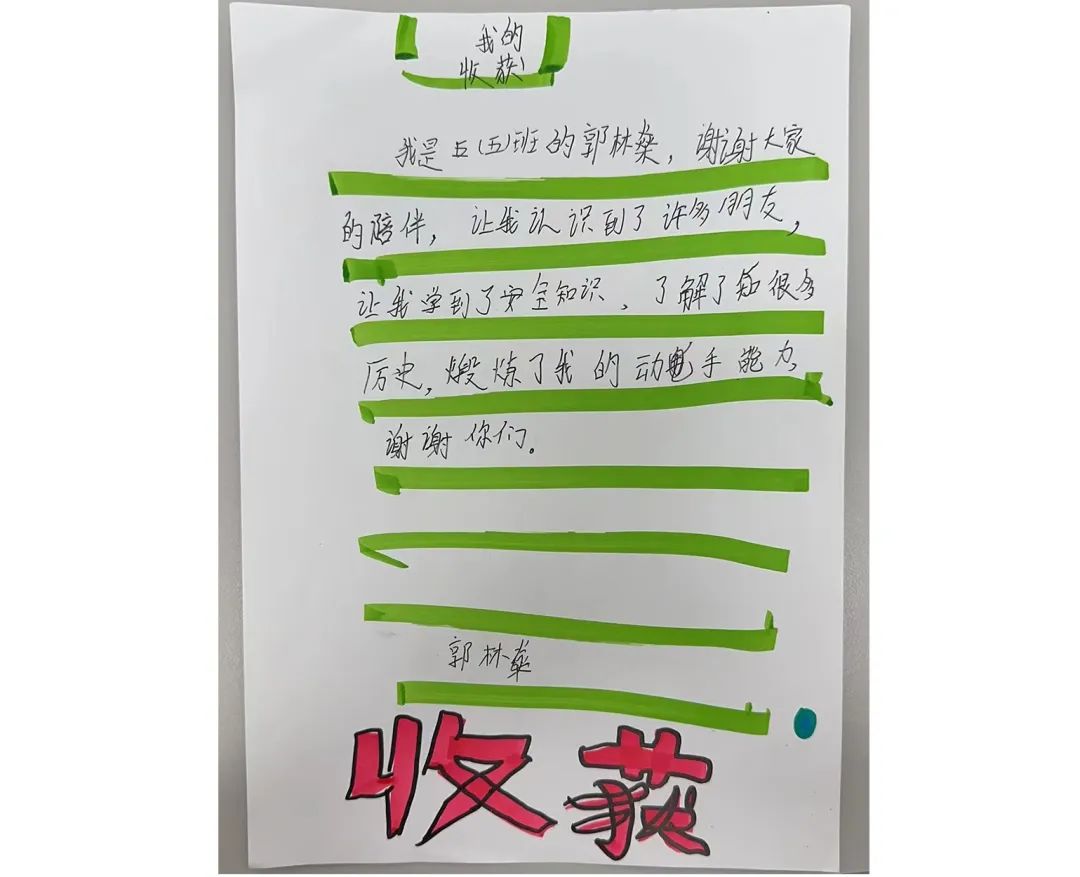 我的
收获
我是五(五)班的郭林燊，谢谢大家
的陪伴，让我认识到了许多朋友，
让我学到了安全知识，了解了很多
历史，煅炼了我的动手能力，
谢谢你们。
郭林燊
收获